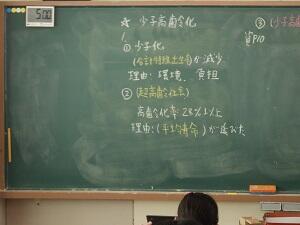 ☆ 少子高齢化
① 少子化
(合計特殊出生率)が減少
理由：環境、負担
② (超高齢社会)
高齢化率：28%以上
理由：(平均寿命)が延びた
③ (少子高
資P10